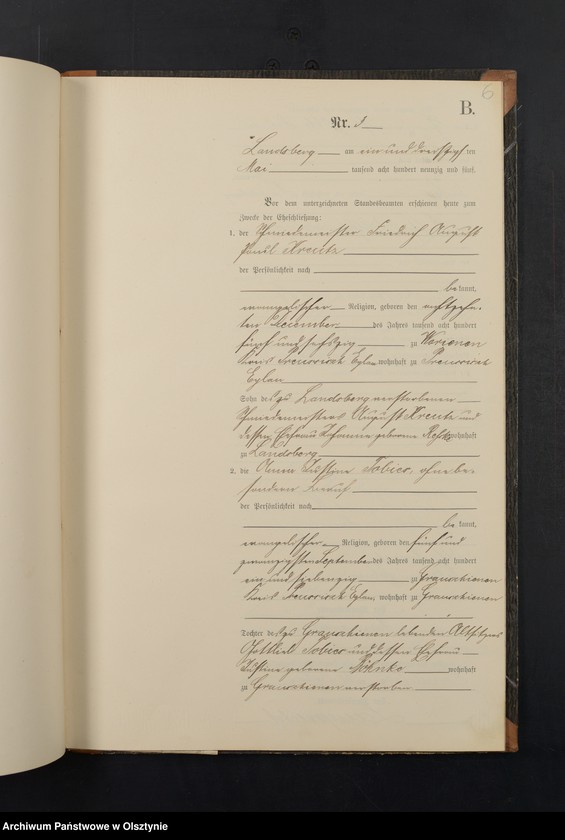 6
B.
Nr.
Landsberg am ein und dreißigsten
Mai tausend acht hundert neunzig und fünf.
Vor dem unterzeichneten Standesbeamten erschienen heute zum
Zwecke der Eheschließung:
1. der Schmiedemeister Friedrich August
Paul Kreutz
der Persönlichkeit nach
bekannt,
evangelischer Religion, geboren den achtzehn-
ten Dezember des Jahres tausend acht hundert
fünf und sechszig zu
Kreis Preussisch Eylau, wohnhaft zu Preussisch
Eylau
Sohn des zu Landsberg verstorbenen
Schmiedemeisters August Kreutz und
dessen Ehefrau Johanna geborene wohnhaft
zu Landsberg
2. die Justine Tobies, ohne be-
sonderen Beruf
der Persönlichkeit nach
bekannt,
evangelischer Religion, geboren den fünf und
zwanzigsten September des Jahres tausend acht hundert
ein und siebenzig zu Grauschienen
Kreis Preussisch Eylau, wohnhaft zu Grauschienen
Tochter des zu Grauschienen lebenden Altsitzers
Gottlieb Tobies und dessen Ehefrau
Justine geborene wohnhaft
zu Grauschienen verstorben
Archiwum Państwowe w Olsztynie